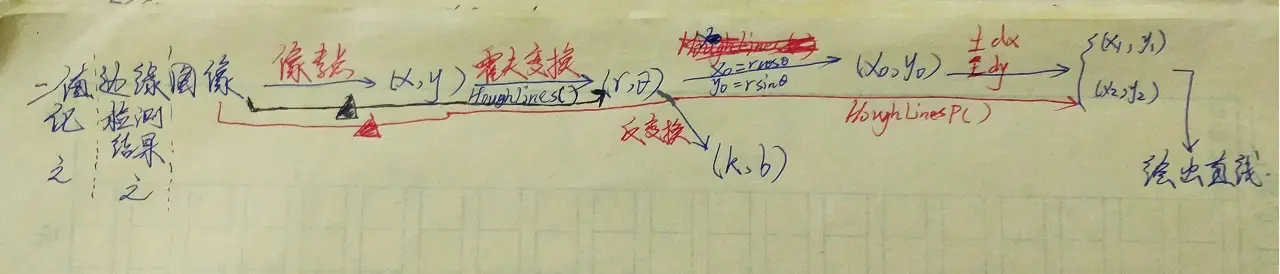 二值边缘图像
像素点
(x,y)
霍夫变换
HoughLines()
(r,θ)
x₀=rcosθ
y₀=rsinθ
(x₀,y₀)
±dx
±dy
(x₁,y₁)
(x₂,y₂)
HoughLinesP()
反变换
(k,b)
绘出直线
检测
结果
之